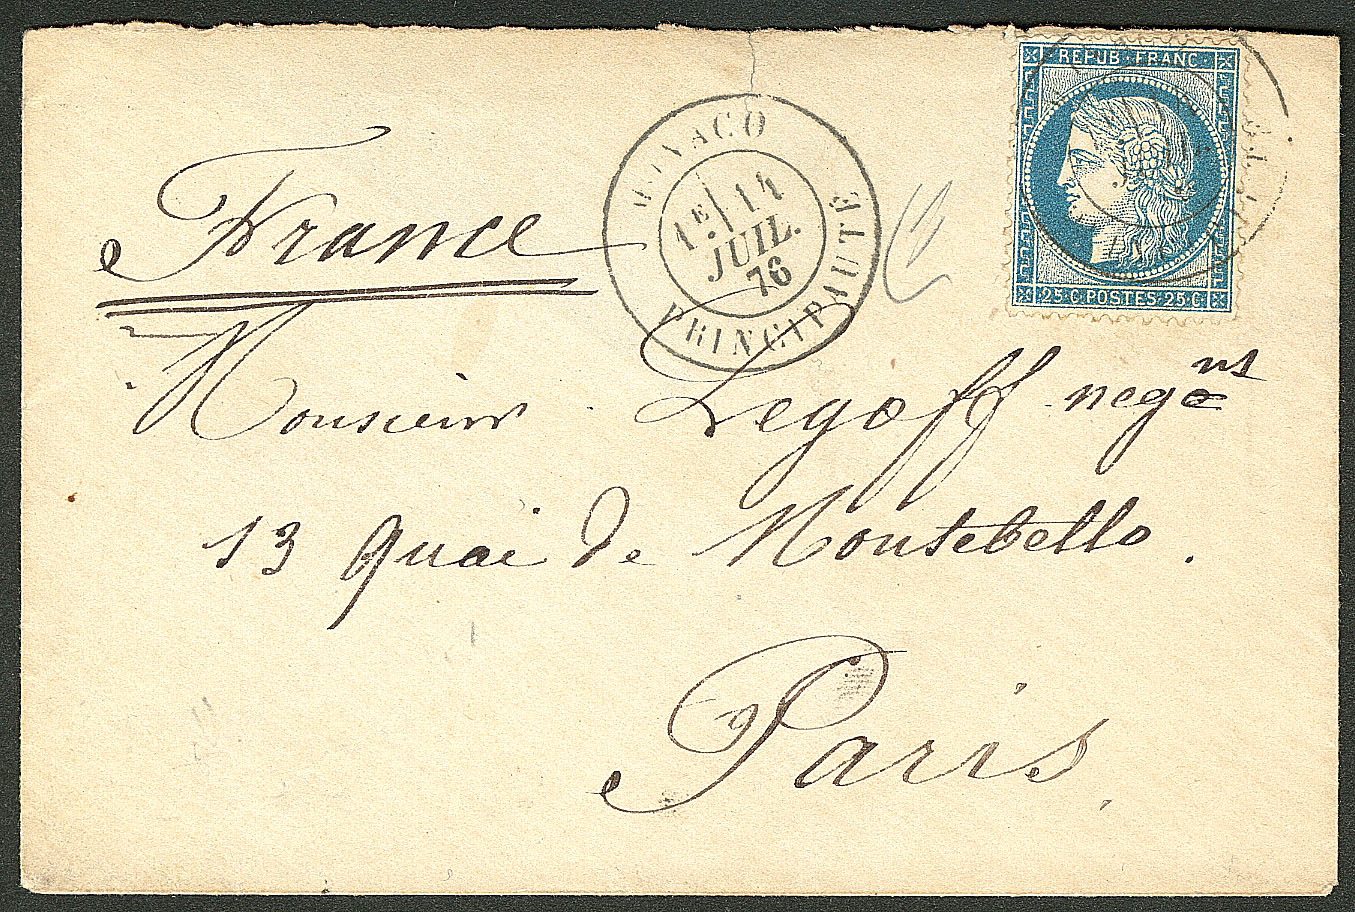 REPUB·FRANC·
25·C·POSTES·25·C
MONACO
1E 14
JUIL.
76
PRINCIPAUTE
France
Monsieur Legoff nego nt
13 quai de Montebello.
Paris